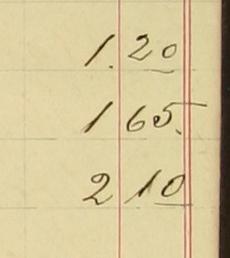 1.20
1 65.
2 10